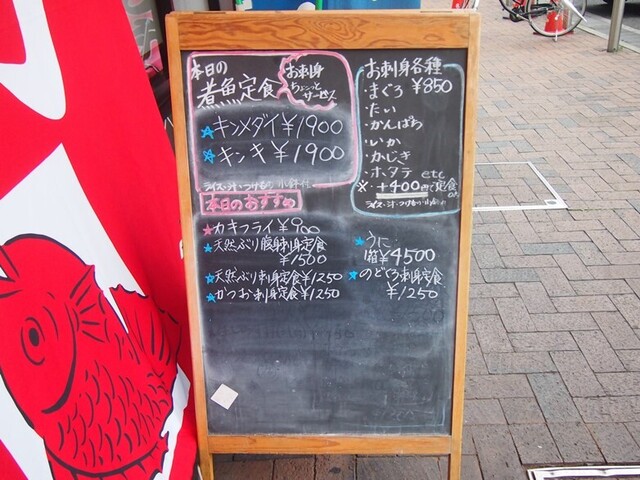 本日の
煮魚定食
お刺身
ちょこっと
サービス
★キンメダイ¥1900
★キンキ¥1900
ライス・汁・つけもの・小鉢付
お刺身各種
・まぐろ ¥850
・たい
・かんぱち
・いか
・かじき
・ホタテ etc
※・+400円で定食
ライス・汁・つけもの・小鉢付
本日のおすすめ
★カキフライ¥900
★天然ぶり腹身刺身定食
¥1500
★天然ぶり刺身定食¥1250
★かつお刺身定食¥1250
★うに
1箱¥4500
★のどぐろ刺身定食
¥1250